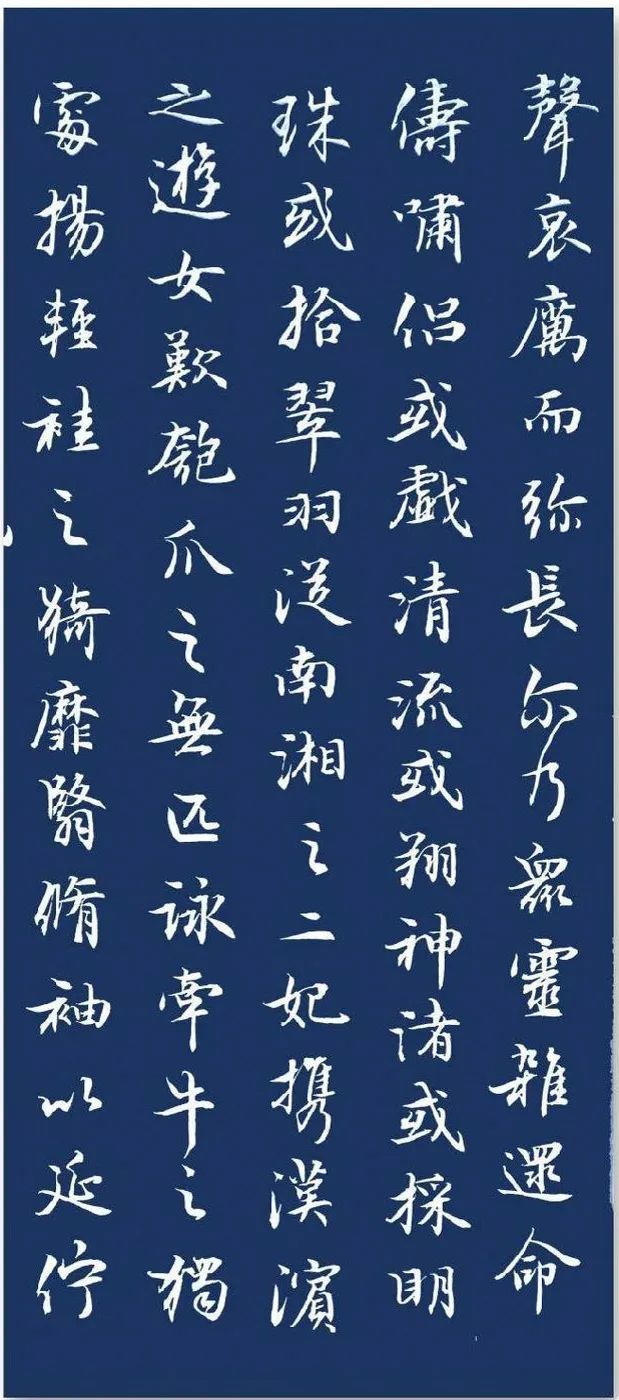 聲哀厲而弥長尔乃衆靈雜遝命
儔嘯侣或戲清流或翔神渚或採明
珠或拾翠羽從南湘之二妃携漢濱
之遊女歎匏爪之無匹詠牽牛之獨
處揚輕袿之猗靡翳脩袖以延佇